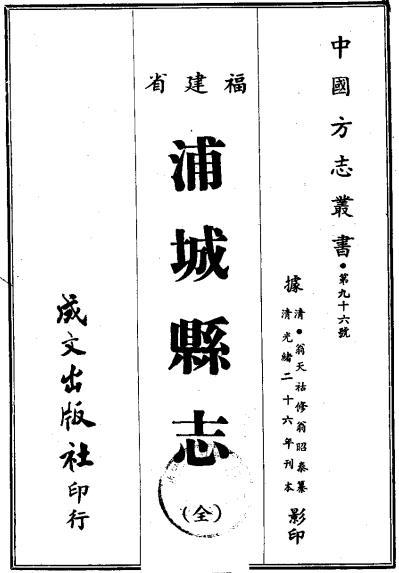 中國方志叢書•第九十六號
據
清•翁天祜修翁昭泰纂
清光緒二十六年刊本
影印
福建省
浦城縣志
(全)
成文出版社印行